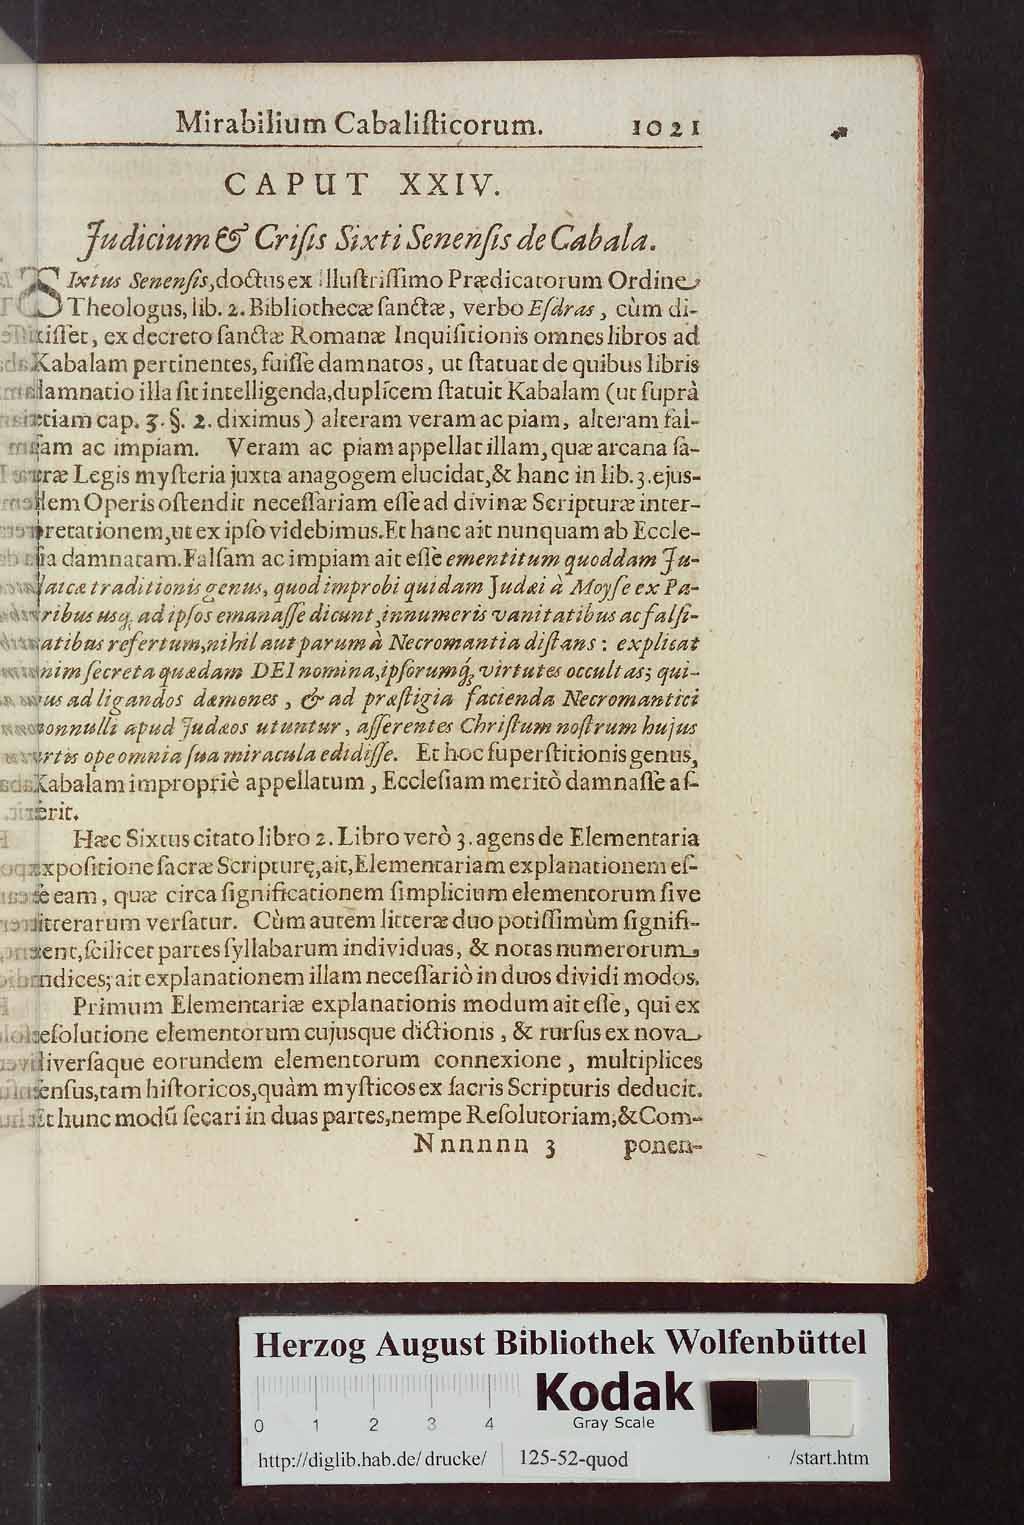 Mirabilium Cabaliſticorum. 1021
CAPUT XXIV.
Judicium & Criſis Sixti Senenſis de Cabala.
SIxtus Senenſis, doctus ex Illuſtriſſimo Prædicatorum Ordine
Theologus, lib. 2. Bibliothecæ ſanctæ, verbo Eſdras, cùm di-
xiſſet, ex decreto ſanctæ Romanæ Inquiſitionis omnes libros ad
Kabalam pertinentes, fuiſſe damnatos, ut ſtatuat de quibus libris
damnatio illa ſit intelligenda, duplicem ſtatuit Kabalam (ut ſuprà
etiam cap. 3. §. 2. diximus) alteram veram ac piam, alteram fal-
ſam ac impiam. Veram ac piam appellat illam, quæ arcana ſa-
cræ Legis myſteria juxta anagogem elucidat, & hanc in lib. 3. ejus-
dem Operis oſtendit neceſſariam eſſe ad divinæ Scripturæ inter-
pretationem, ut ex ipſo videbimus. Et hanc ait nunquam ab Eccle-
ſia damnatam. Falſam ac impiam ait eſſe ementitum quoddam Ju-
daicæ traditionis genus, quod improbi quidam Judæi à Moyſe ex Pa-
tribus usq; ad ipſos emanaſſe dicunt, innumeris vanitatibus ac falſi-
tatibus refertum, nihil aut parum à Necromantia diſtans: explicat
enim ſecreta quædam DEI nomina, ipſorumq́; virtutes occultas; qui-
bus ad ligandos dæmones, & ad præſtigia facienda Necromantici
nonnulli apud Judæos utuntur, aſſerentes Chriſtum noſtrum hujus
artis ope omnia ſua miracula edidiſſe. Et hoc ſuperſtitionis genus,
Kabalam impropriè appellatum, Eccleſiam meritò damnaſſe aſ-
ſerit.
Hæc Sixtus citato libro 2. Libro verò 3. agens de Elementaria
expoſitione ſacræ Scripturę, ait, Elementariam explanationem eſ-
ſe eam, quæ circa ſignificationem ſimplicium elementorum ſive
litterarum verſatur. Cùm autem litteræ duo potiſſimùm ſignifi-
cent, ſcilicet partes ſyllabarum individuas, & notas numerorum
indices; ait explanationem illam neceſſariò in duos dividi modos.
Primum Elementariæ explanationis modum ait eſſe, qui ex
reſolutione elementorum cujusque dictionis, & rurſus ex nova
diverſaque eorundem elementorum connexione, multiplices
ſenſus, tam hiſtoricos, quàm myſticos ex ſacris Scripturis deducit.
Et hunc modũ ſecari in duas partes, nempe Reſolutoriam, & Com-
Nnnnnn 3 ponen-
Herzog August Bibliothek Wolfenbüttel
Kodak
Gray Scale
0 1 2 3 4
http://diglib.hab.de/drucke/ 125-52-quod /start.htm